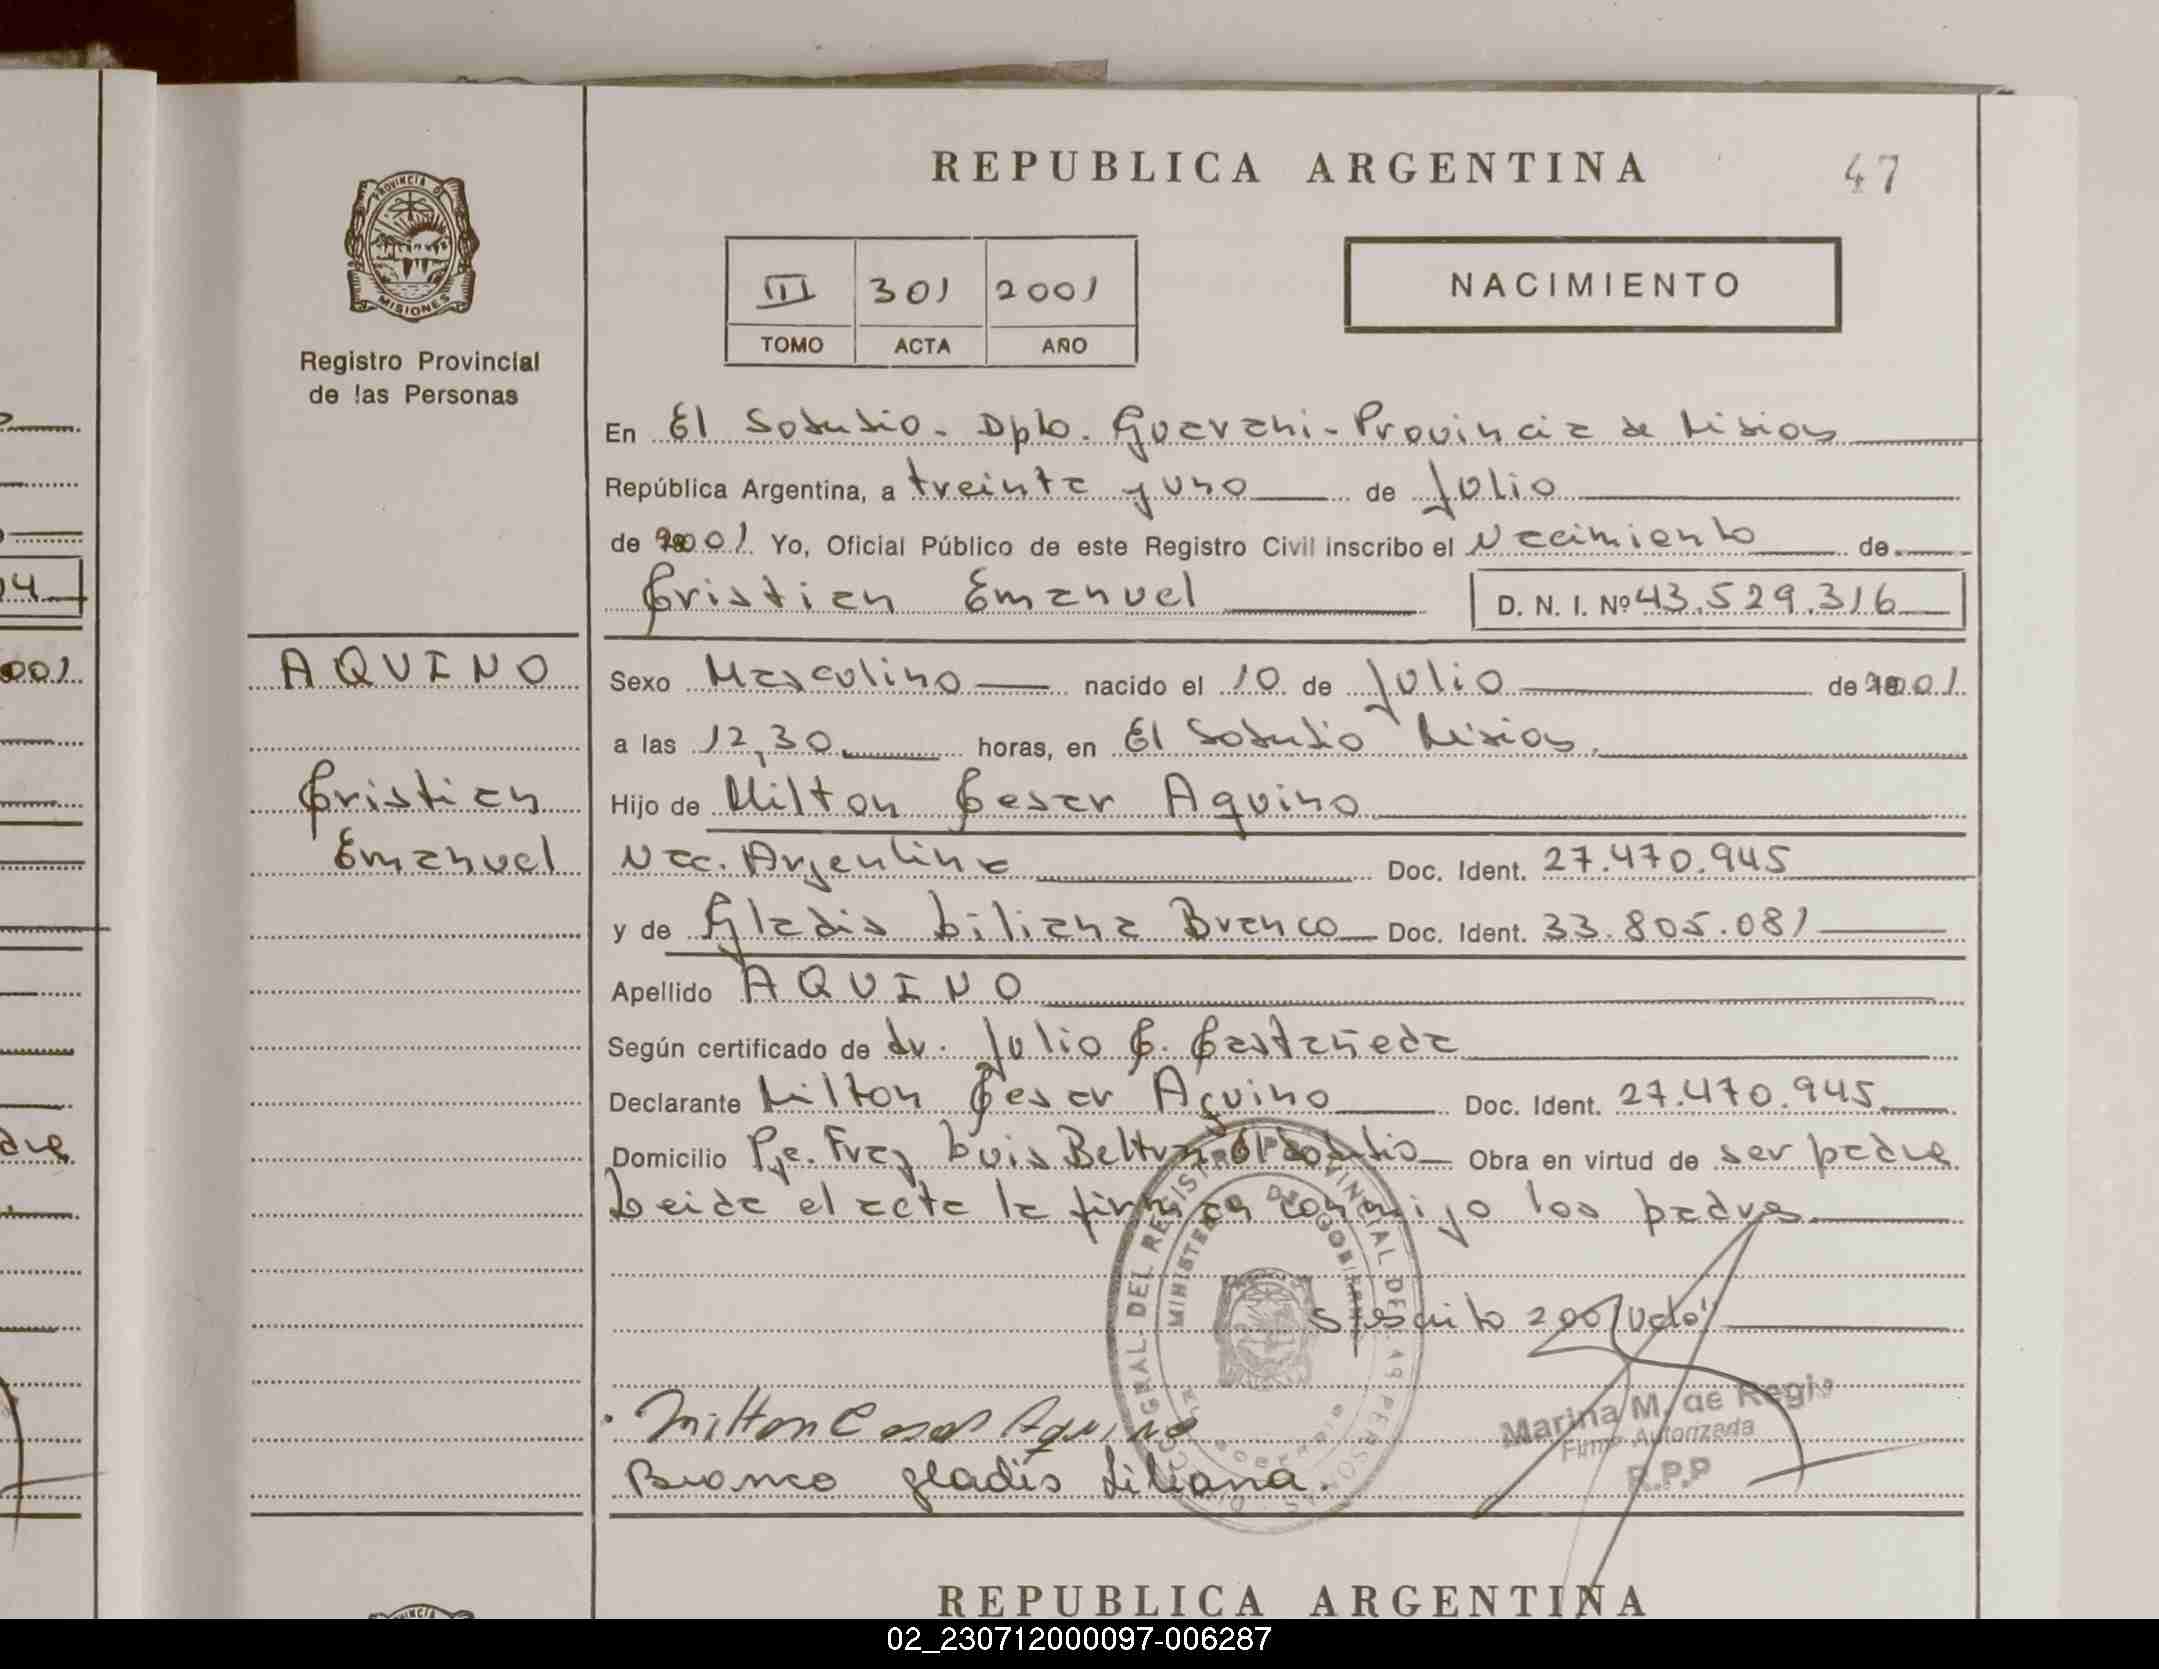 REPUBLICA ARGENTINA
47
PROVINCIA DE
MISIONES
Registro Provincial
de las Personas
III 301 2001
TOMO ACTA AÑO
NACIMIENTO
En El Soberbio - Dpto. Guarani - Provincia de Misiones
República Argentina, a treinta y uno de Julio
de 2001 Yo, Oficial Público de este Registro Civil inscribo el Nacimiento de
Cristian Emanuel D. N. I. Nº 43.529.316
AQUINO
Cristian
Emanuel
Sexo Masculino nacido el 10 de Julio de 2001
a las 12,30 horas, en El Soberbio Misiones
Hijo de Milton Cesar Aquino
Nac. Argentina Doc. Ident. 27.470.945
y de Gladis Liliana Branco Doc. Ident. 33.805.081
Apellido AQUINO
Según certificado de dr. Julio C. Castañeda
Declarante Milton Cesar Aquino Doc. Ident. 27.470.945
Domicilio Pje. Fray Luis Beltran El Soberbio Obra en virtud de ser padre
Leida el acta la firman conmigo los padres
S/escrito 2001 Vale
Milton Cesar Aquino
Branco gladis Liliana.
Marina M. de Regis
Firma Autorizada
R.P.P
MINISTERIO DE GOBIERNO
REPUBLICA ARGENTINA
02_230712000097-006287